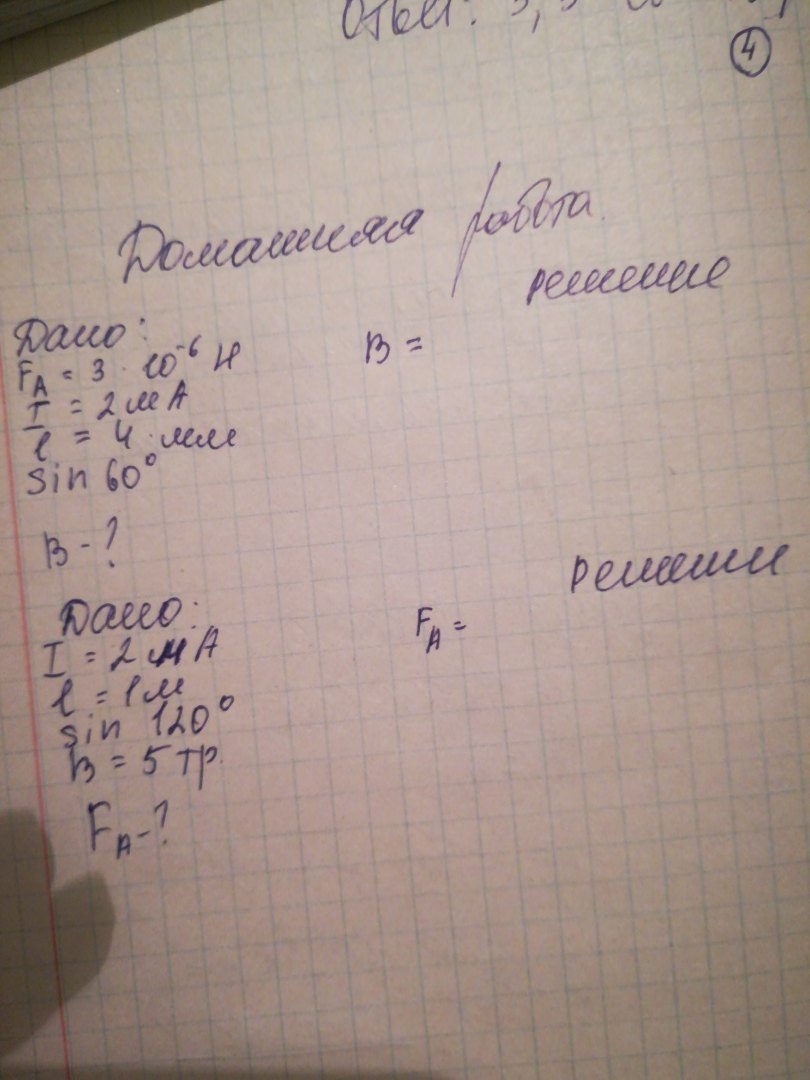 Ответ: 3,3
4
Домашняя работа
решение
Дано:
F_A = 3 · 10⁻⁶ Н
I = 2 мА
l = 4 · мм
sin 60°
B = 
B - ?
Дано:
I = 2 мА
l = 1 м
sin 120°
B = 5 тр.
F_A - ?
решение
F_A =